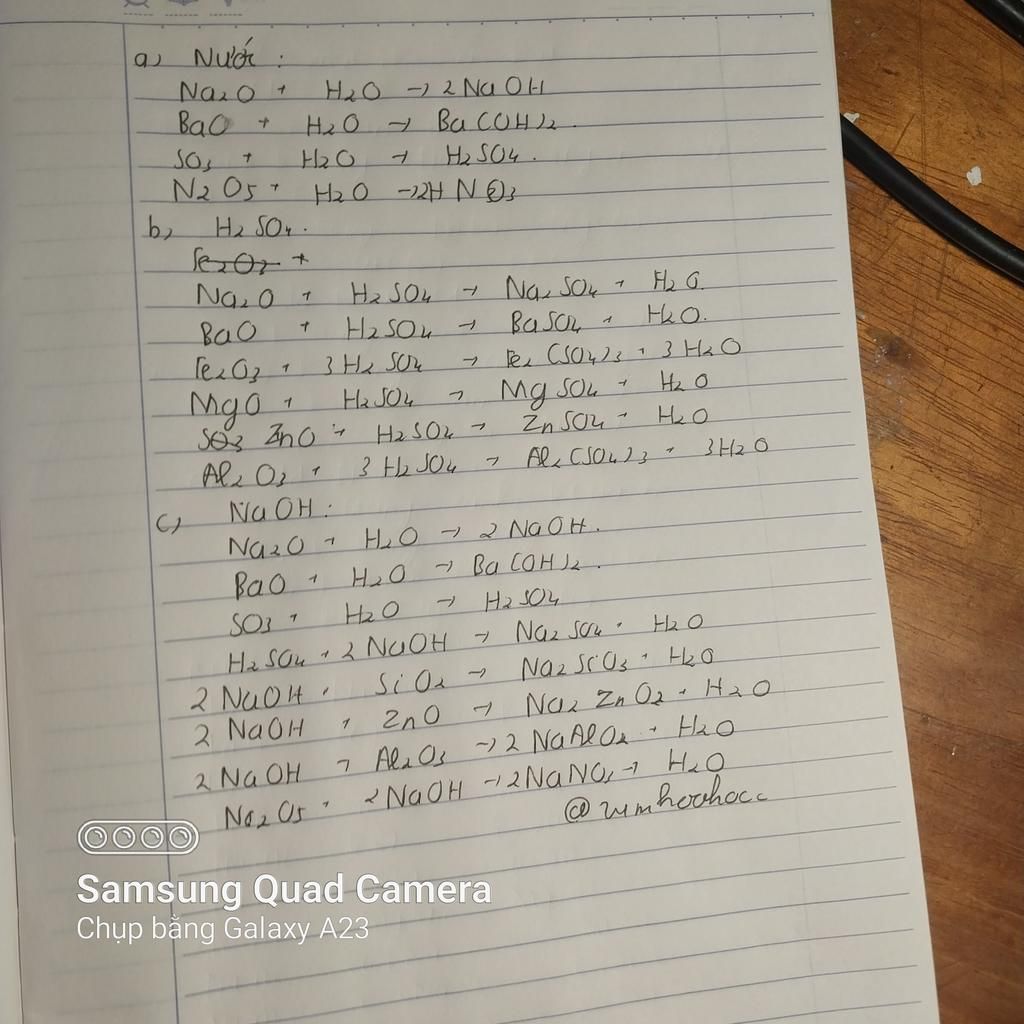 a) Nước :
Na2O + H2O → 2NaOH
BaO + H2O → Ba(OH)2.
SO3 + H2O → H2SO4.
N2O5 + H2O → 2HNO3
b) H2SO4.
Fe2O3 +
Na2O + H2SO4 → Na2SO4 + H2O.
BaO + H2SO4 → BaSO4 + H2O.
Fe2O3 + 3H2SO4 → Fe2(SO4)3 + 3H2O
MgO + H2SO4 → MgSO4 + H2O
SO3 ZnO + H2SO4 → ZnSO4 + H2O
Al2O3 + 3H2SO4 → Al2(SO4)3 + 3H2O
c) NaOH :
Na2O + H2O → 2NaOH.
BaO + H2O → Ba(OH)2.
SO3 + H2O → H2SO4
H2SO4 + 2NaOH → Na2SO4 + H2O
2NaOH + SiO2 → Na2SiO3 + H2O
2NaOH + ZnO → Na2ZnO2 + H2O
2NaOH + Al2O3 → 2NaAlO2 + H2O
Na2O5 + 2NaOH → 2NaNO3 + H2O
Samsung Quad Camera
Chụp bằng Galaxy A23